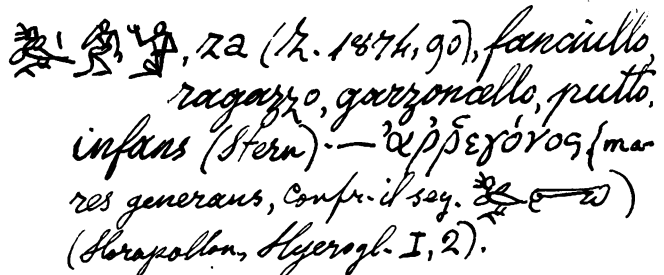 , za (Z. 1874, 90), fanciullo,
ragazzo, garzoncello, putto,
infans (Stern). — ἀῤῥεγόνος (ma-
res generans, Confr. il seg. )
(Horapollon, Hyerogl. I, 2).